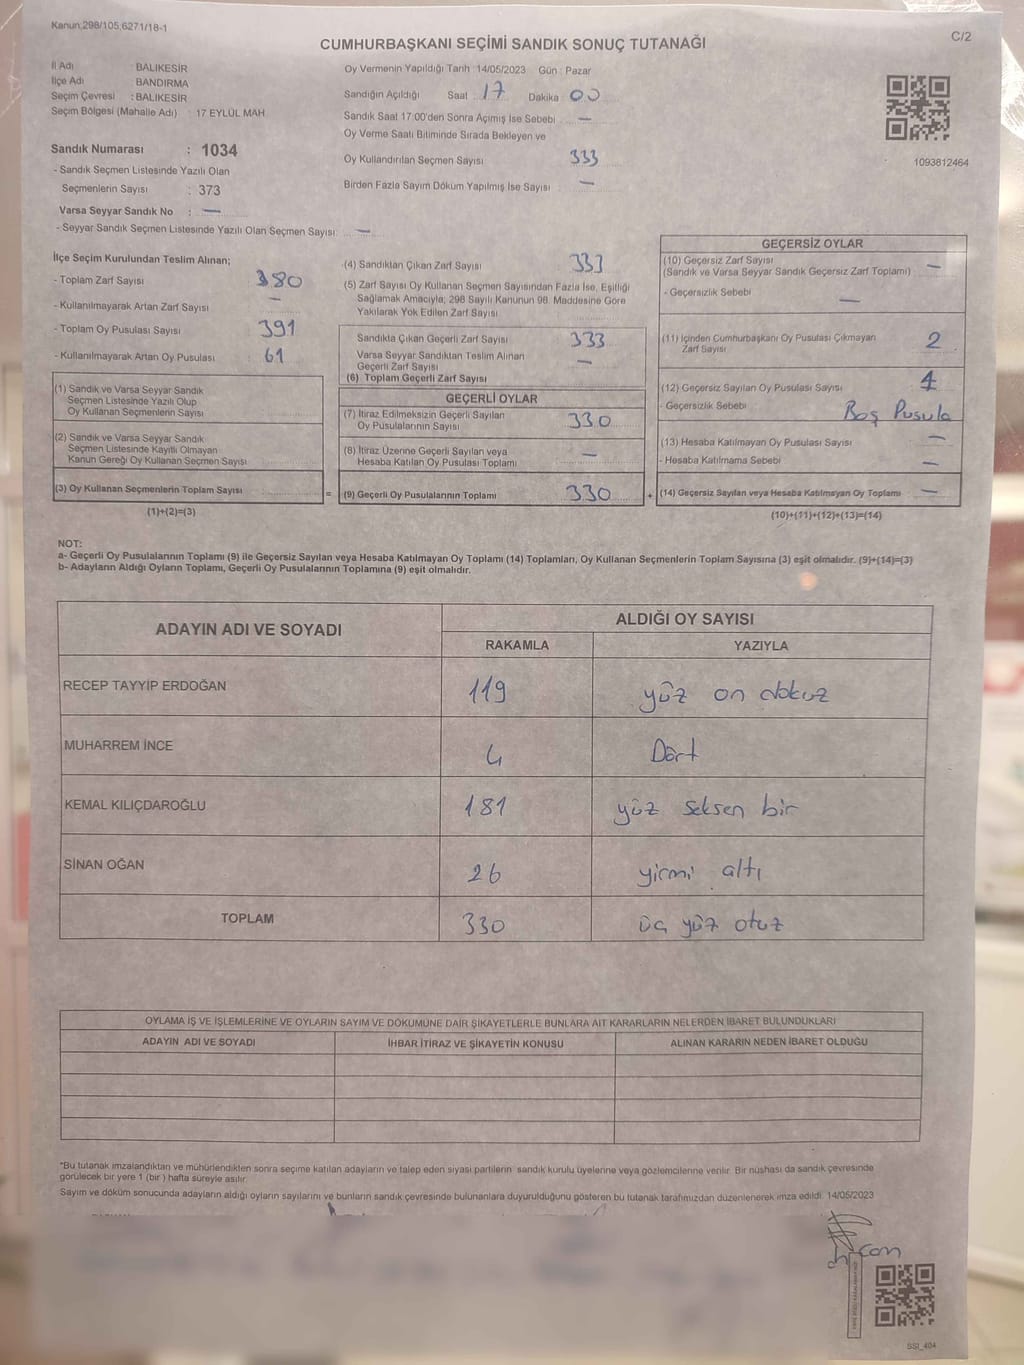 Kanun:298/105,6271/18-1
C/2
CUMHURBAŞKANI SEÇİMİ SANDIK SONUÇ TUTANAĞI
İl Adı : BALIKESİR
İlçe Adı : BANDIRMA
Seçim Çevresi : BALIKESİR
Seçim Bölgesi (Mahalle Adı) : 17 EYLÜL MAH
Sandık Numarası : 1034
- Sandık Seçmen Listesinde Yazılı Olan
Seçmenlerin Sayısı : 373
Varsa Seyyar Sandık No : —
- Seyyar Sandık Seçmen Listesinde Yazılı Olan Seçmen Sayısı: —
Oy Vermenin Yapıldığı Tarih :14/05/2023 Gün : Pazar
Sandığın Açıldığı Saat : 17 Dakika 00
Sandık Saat 17:00'den Sonra Açımış İse Sebebi : —
Oy Verme Saati Bitiminde Sırada Bekleyen ve
Oy Kullandırılan Seçmen Sayısı : 333
Birden Fazla Sayım Döküm Yapılmış İse Sayısı : —
1093812464
İlçe Seçim Kurulundan Teslim Alınan;
- Toplam Zarf Sayısı : 380
- Kullanılmayarak Artan Zarf Sayısı : —
- Toplam Oy Pusulası Sayısı : 391
- Kullanılmayarak Artan Oy Pusulası : 61
(1) Sandık ve Varsa Seyyar Sandık
Seçmen Listesinde Yazılı Olup
Oy Kullanan Seçmenlerin Sayısı
(2) Sandık ve Varsa Seyyar Sandık
Seçmen Listesinde Kayıtlı Olmayan
Kanun Gereği Oy Kullanan Seçmen Sayısı
(3) Oy Kullanan Seçmenlerin Toplam Sayısı
(1)+(2)=(3)
(4) Sandıktan Çıkan Zarf Sayısı : 333
(5) Zarf Sayısı Oy Kullanan Seçmen Sayısından Fazla İse, Eşitliği
Sağlamak Amacıyla; 298 Sayılı Kanunun 98. Maddesine Göre
Yakılarak Yok Edilen Zarf Sayısı
Sandıkta Çıkan Geçerli Zarf Sayısı : 333
Varsa Seyyar Sandıktan Teslim Alınan
Geçerli Zarf Sayısı : —
(6) Toplam Geçerli Zarf Sayısı
GEÇERLİ OYLAR
(7) İtiraz Edilmeksizin Geçerli Sayılan
Oy Pusulalarının Sayısı : 330
(8) İtiraz Üzerine Geçerli Sayılan veya
Hesaba Katılan Oy Pusulası Toplamı : —
= (9) Geçerli Oy Pusulalarının Toplamı : 330 +
GEÇERSİZ OYLAR
(10) Geçersiz Zarf Sayısı
(Sandık ve Varsa Seyyar Sandık Geçersiz Zarf Toplamı) —
- Geçersizlik Sebebi : —
(11) İçinden Cumhurbaşkanı Oy Pusulası Çıkmayan
Zarf Sayısı : 2
(12) Geçersiz Sayılan Oy Pusulası Sayısı
- Geçersizlik Sebebi : Boş Pusula
(13) Hesaba Katılmayan Oy Pusulası Sayısı : —
- Hesaba Katılmama Sebebi : —
(14) Geçersiz Sayılan veya Hesaba Katılmayan Oy Toplamı : —
(10)+(11)+(12)+(13)=(14)
NOT:
a- Geçerli Oy Pusulalarının Toplamı (9) ile Geçersiz Sayılan veya Hesaba Katılmayan Oy Toplamı (14) Toplamları, Oy Kullanan Seçmenlerin Toplam Sayısına (3) eşit olmalıdır. (9)+(14)=(3)
b- Adayların Aldığı Oyların Toplamı, Geçerli Oy Pusulalarının Toplamına (9) eşit olmalıdır.
ADAYIN ADI VE SOYADI ALDIĞI OY SAYISI
RAKAMLA YAZIYLA
RECEP TAYYİP ERDOĞAN 119 yüz on dokuz
MUHARREM İNCE 4 Dört
KEMAL KILIÇDAROĞLU 181 yüz seksen bir
SİNAN OĞAN 26 yirmi altı
TOPLAM 330 üç yüz otuz
OYLAMA İŞ VE İŞLEMLERİNE VE OYLARIN SAYIM VE DÖKÜMÜNE DAİR ŞİKAYETLERLE BUNLARA AİT KARARLARIN NELERDEN İBARET BULUNDUKLARI
ADAYIN ADI VE SOYADI İHBAR İTİRAZ VE ŞİKAYETİN KONUSU ALINAN KARARIN NEDEN İBARET OLDUĞU
*Bu tutanak imzalandıktan ve mühürlendikten sonra seçime katılan adayların ve talep eden siyasi partilerin sandık kurulu üyelerine veya gözlemcilerine verilir. Bir nüshası da sandık çevresinde
görülecek bir yere 1 (bir ) hafta süreyle asılır.
Sayım ve döküm sonucunda adayların aldığı oyların sayılarını ve bunların sandık çevresinde bulunanlara duyurulduğunu gösteren bu tutanak tarafımızdan düzenlenerek imza edildi. 14/05/2023
SSI_404